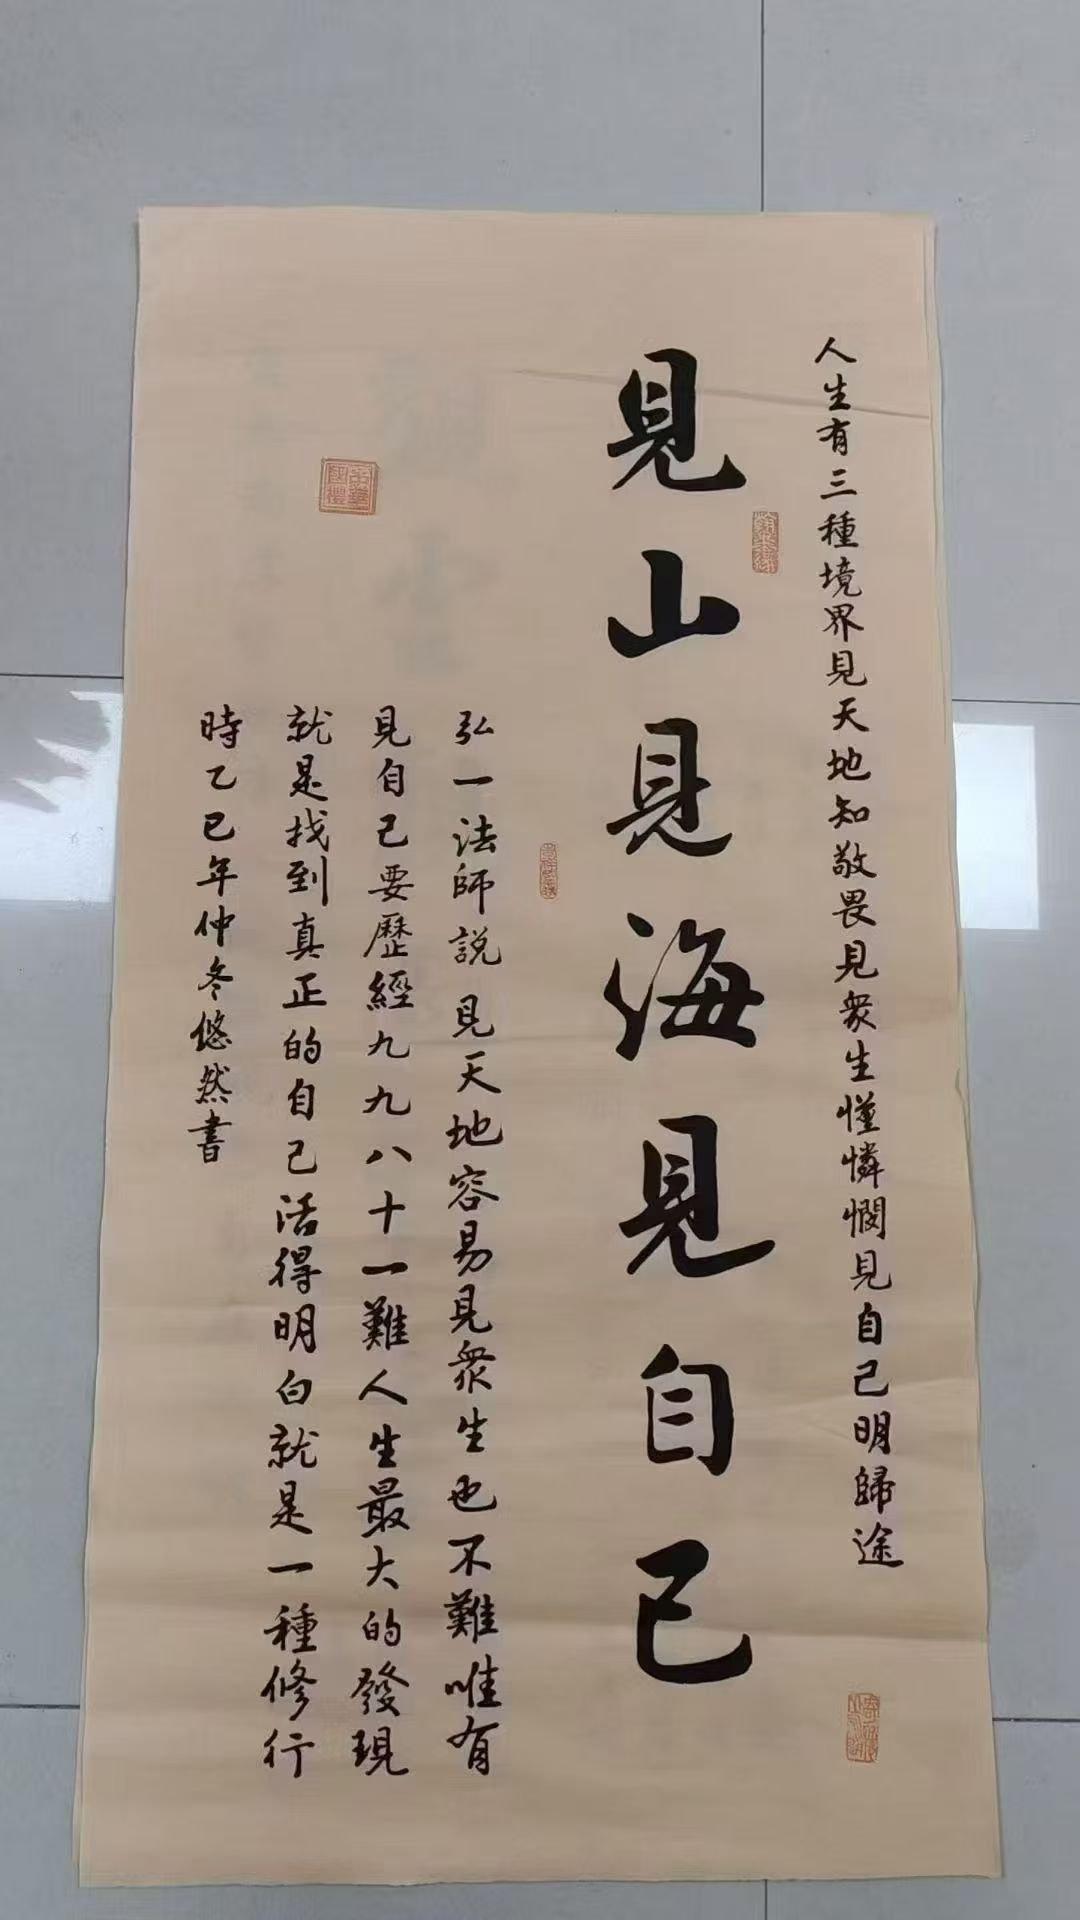 人生有三種境界見天地知敬畏見衆生懂憐憫見自己明歸途
見山見海見自己
弘一法師説見天地容易見衆生也不難唯有
見自己要歷經九九八十一難人生最大的發現
就是找到真正的自己活得明白就是一種修行
時乙巳年仲冬悠然書